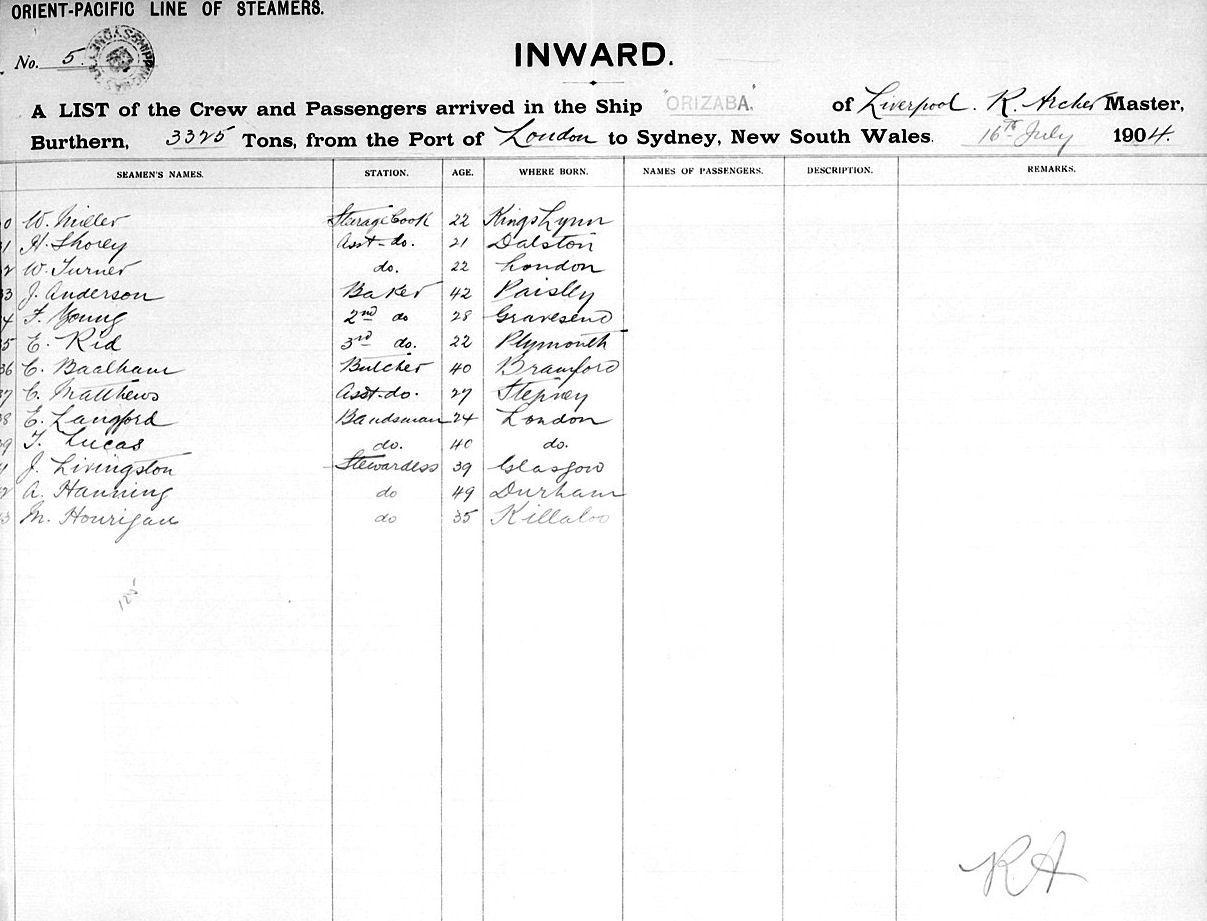 ORIENT-PACIFIC LINE OF STEAMERS.
No. 5.
INWARD.
A LIST of the Crew and Passengers arrived in the Ship "ORIZABA." of Liverpool. R. Archer Master,
Burthern, 3325 Tons, from the Port of London to Sydney, New South Wales. 16th July 1904.
SEAMEN'S NAMES. STATION. AGE. WHERE BORN. NAMES OF PASSENGERS. DESCRIPTION. REMARKS.
0 W. Miller Storage Cook 22 Kings Lynn
1 H. Shorey Asst. do. 21 Dalston
2 W. Turner do. 22 London
33 J. Anderson Baker 42 Paisley
4 F. Young 2nd do 28 Gravesend
5 E. Rid 3rd do. 22 Plymouth
36 C. Baalham Butcher 40 Bramford
37 C. Matthews Asst. do. 27 Stepney
8 E. Langford Bandsman 24 London
9 T. Lucas do. 40 do.
1 J. Livingston Stewardess 39 Glasgow
2 A. Hanning do 49 Durham
3 M. Hourigan do 35 Killaloo
125
RA